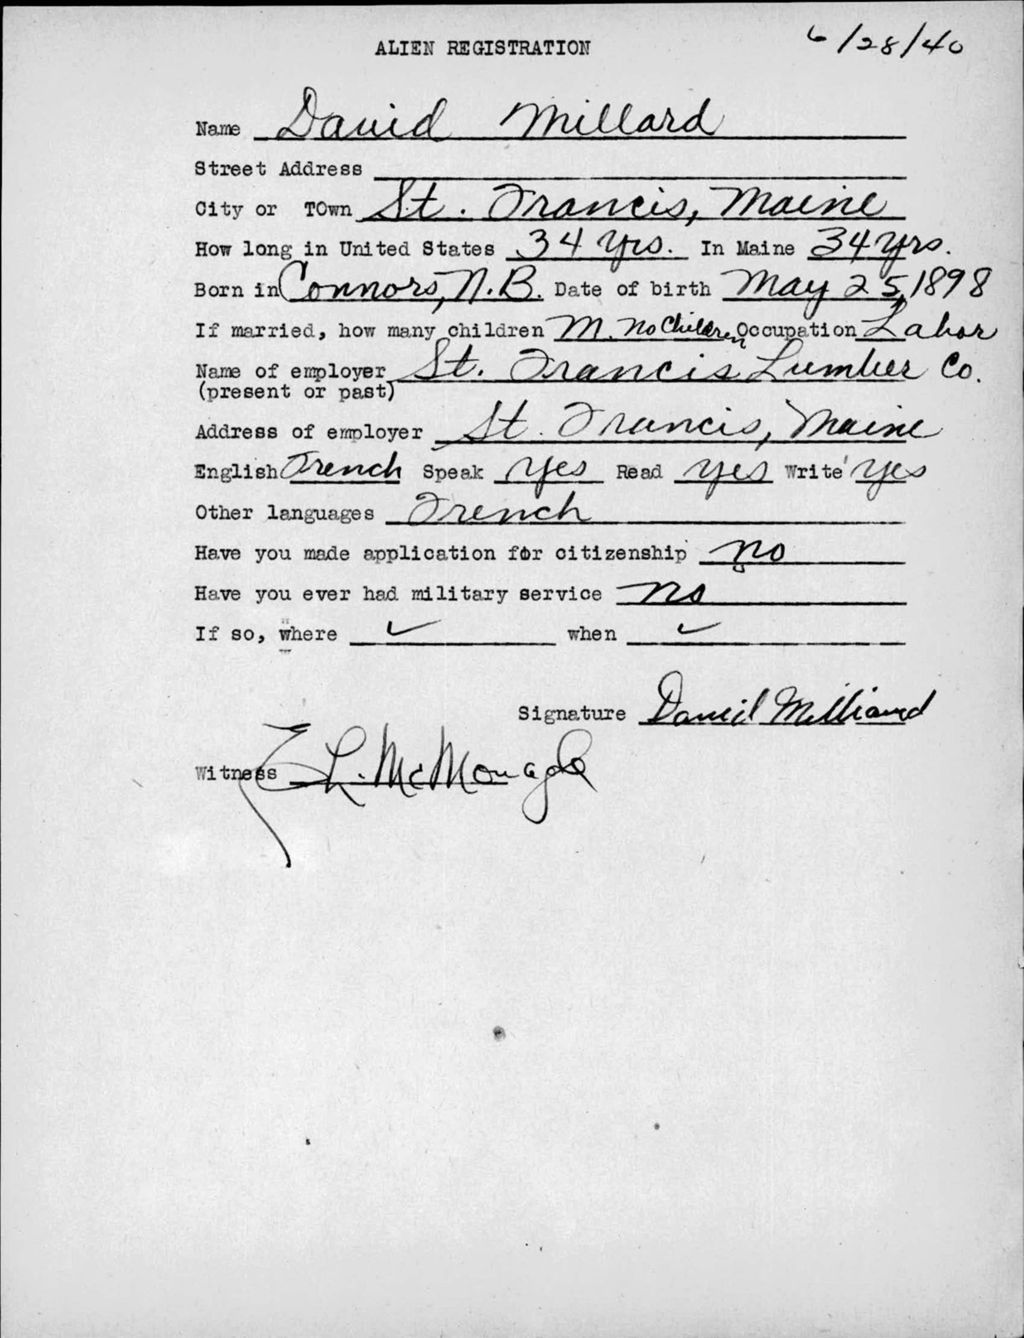 6/28/40
ALIEN REGISTRATION
Name David Millard
Street Address
City or TOwn St. Francis, Maine
How long in United States 34 Yrs. In Maine 34 Yrs.
Born in Connors, N.B. Date of birth May 25, 1898
If married, how many children M. No Children Occupation Labor
Name of employer St. Francis Lumber Co.
(present or past)
Address of employer St. Francis, Maine
English French Speak Yes Read Yes Write Yes
Other languages French
Have you made application for citizenship No
Have you ever had military service No
If so, where ✓ when ✓
Signature David Milliard
Witness L. McMonagle